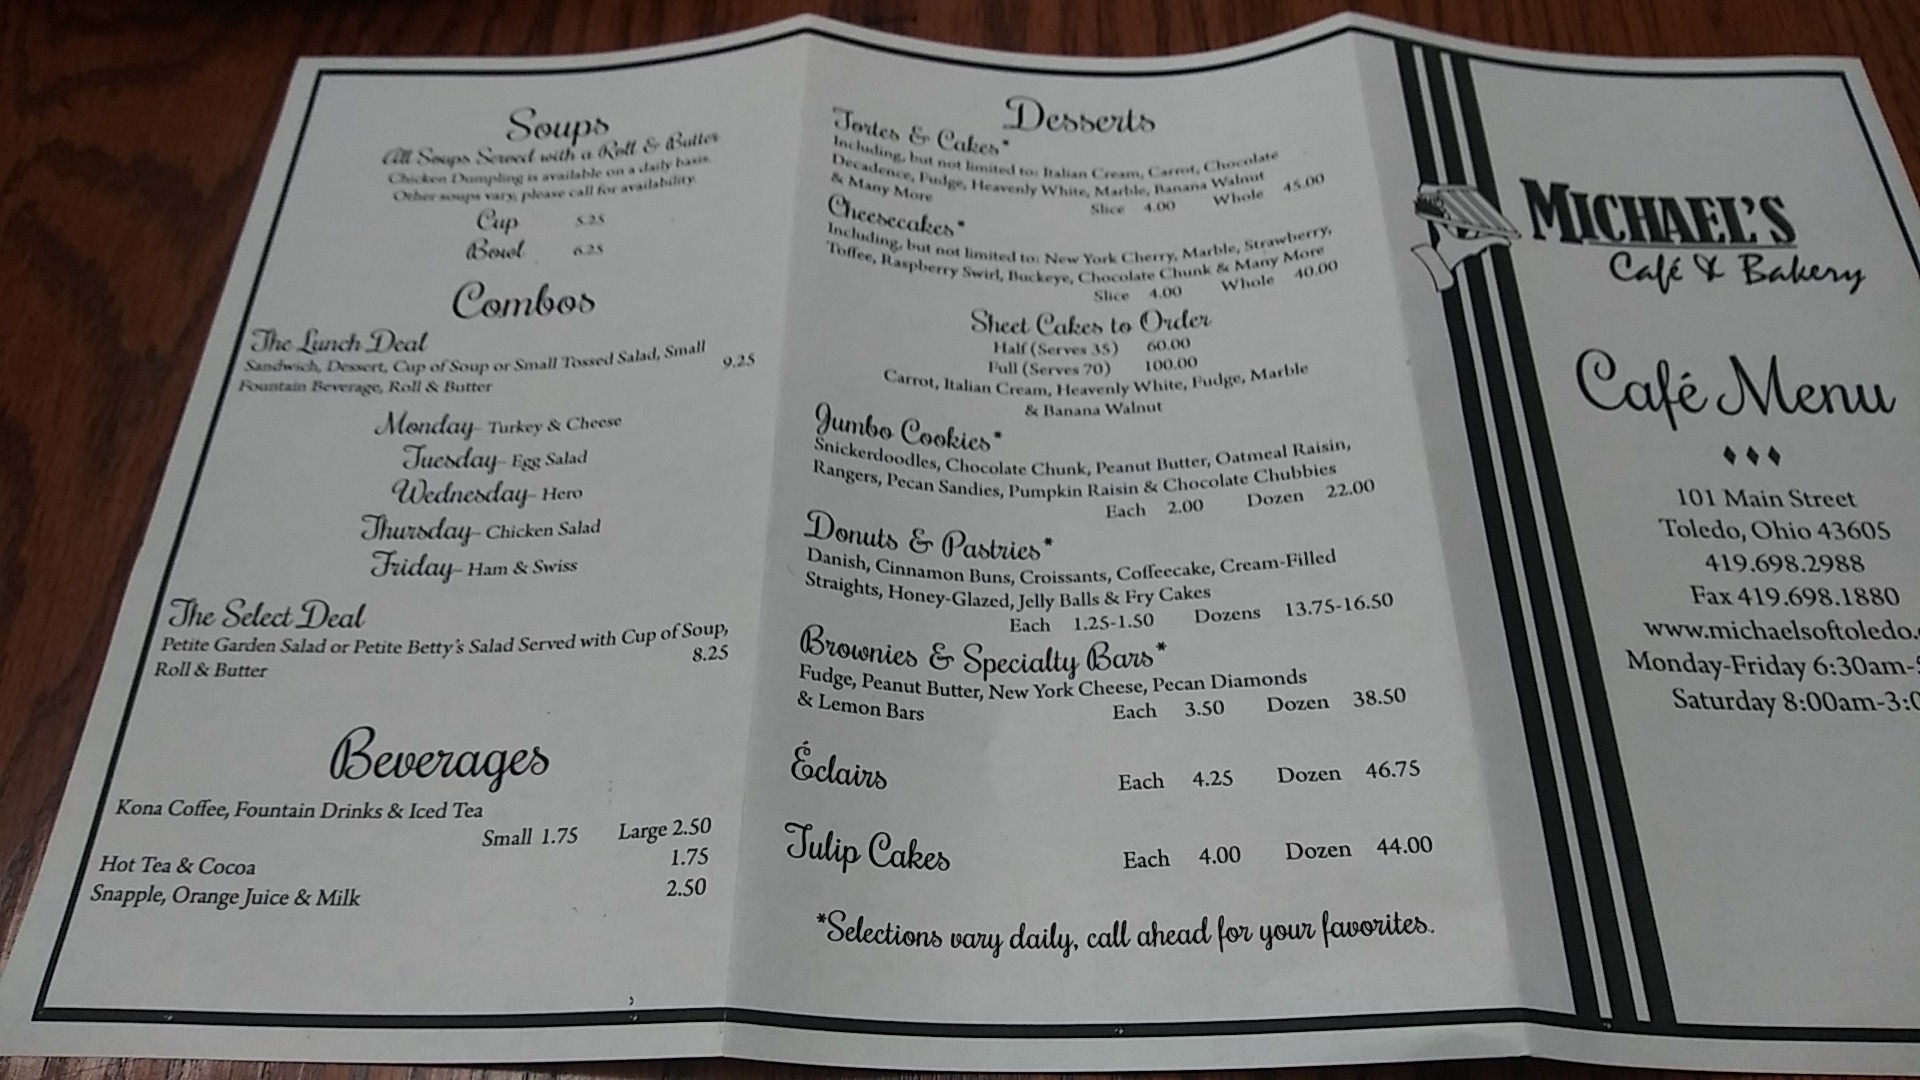 Soups
All Soups Served with a Roll & Butter
Chicken Dumpling is available on a daily basis.
Other soups vary, please call for availability.
Cup 5.25
Bowl 6.25
Combos
The Lunch Deal
Sandwich, Dessert, Cup of Soup or Small Tossed Salad, Small
Fountain Beverage, Roll & Butter 9.25
Monday- Turkey & Cheese
Tuesday- Egg Salad
Wednesday- Hero
Thursday- Chicken Salad
Friday- Ham & Swiss
The Select Deal
Petite Garden Salad or Petite Betty's Salad Served with Cup of Soup,
Roll & Butter 8.25
Beverages
Kona Coffee, Fountain Drinks & Iced Tea
Small 1.75 Large 2.50
Hot Tea & Cocoa 1.75
Snapple, Orange Juice & Milk 2.50
Desserts
Tortes & Cakes*
Including, but not limited to: Italian Cream, Carrot, Chocolate
Decadence, Fudge, Heavenly White, Marble, Banana Walnut
& Many More Slice 4.00 Whole 45.00
Cheesecakes*
Including, but not limited to: New York Cherry, Marble, Strawberry,
Toffee, Raspberry Swirl, Buckeye, Chocolate Chunk & Many More
Slice 4.00 Whole 40.00
Sheet Cakes to Order
Half (Serves 35) 60.00
Full (Serves 70) 100.00
Carrot, Italian Cream, Heavenly White, Fudge, Marble
& Banana Walnut
Jumbo Cookies*
Snickerdoodles, Chocolate Chunk, Peanut Butter, Oatmeal Raisin,
Rangers, Pecan Sandies, Pumpkin Raisin & Chocolate Chubbies
Each 2.00 Dozen 22.00
Donuts & Pastries*
Danish, Cinnamon Buns, Croissants, Coffeecake, Cream-Filled
Straights, Honey-Glazed, Jelly Balls & Fry Cakes
Each 1.25-1.50 Dozens 13.75-16.50
Brownies & Specialty Bars*
Fudge, Peanut Butter, New York Cheese, Pecan Diamonds
& Lemon Bars Each 3.50 Dozen 38.50
Éclairs Each 4.25 Dozen 46.75
Tulip Cakes Each 4.00 Dozen 44.00
*Selections vary daily, call ahead for your favorites.
MICHAEL'S
Café & Bakery
Café Menu
101 Main Street
Toledo, Ohio 43605
419.698.2988
Fax 419.698.1880
www.michaelsoftoledo.
Monday-Friday 6:30am-
Saturday 8:00am-3: